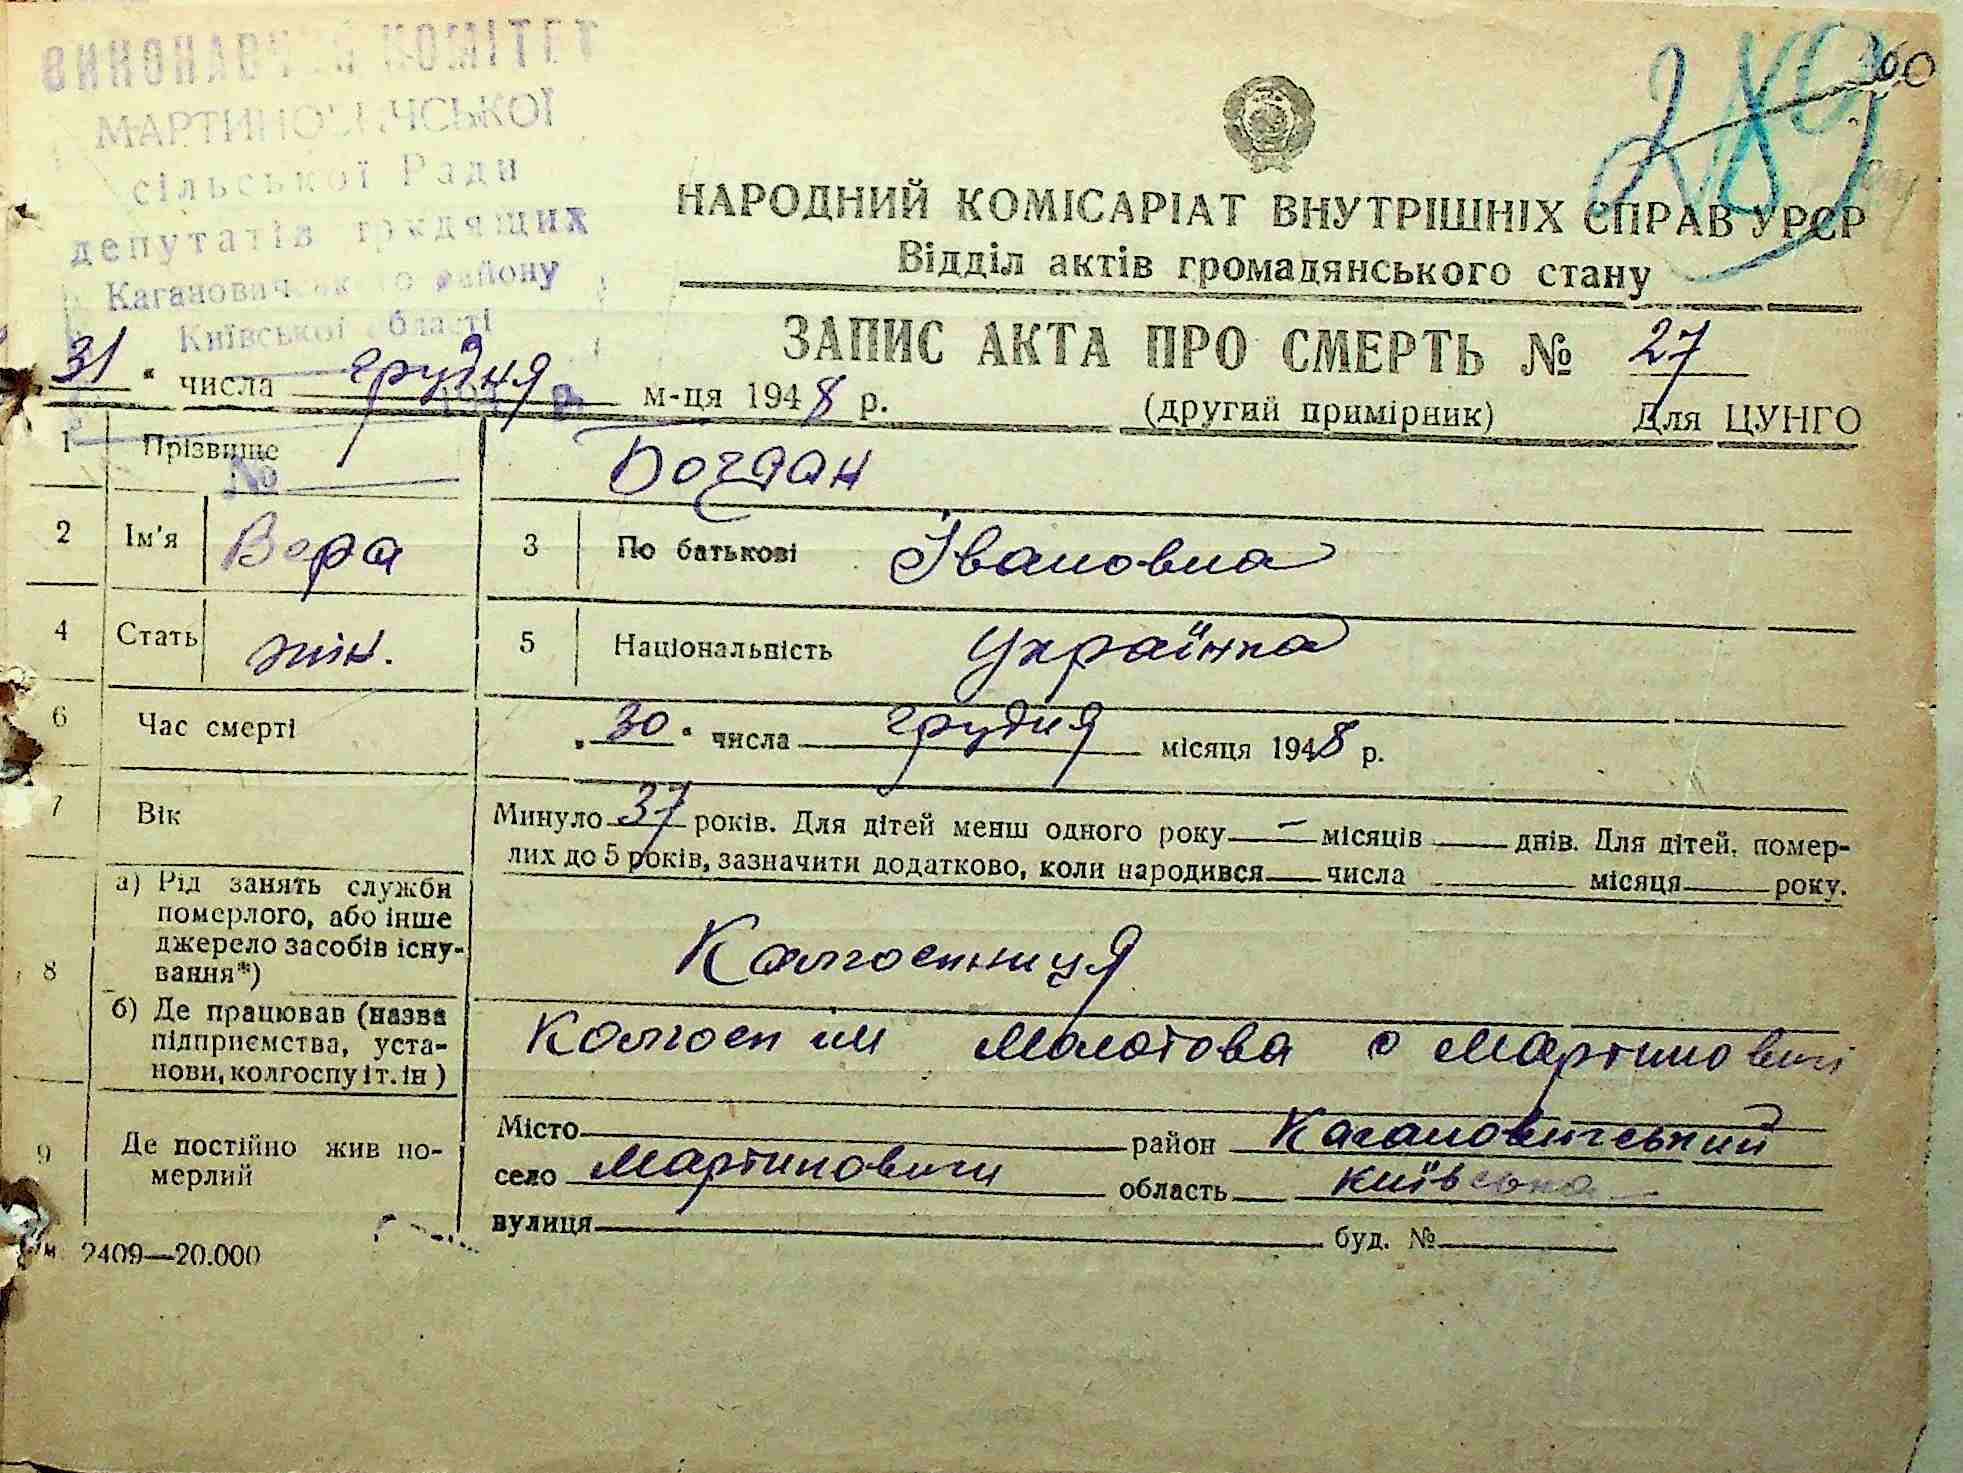 ВИКОНАВЧИЙ КОМІТЕТ
МАРТИНОВИЧСЬКОЇ
сільської Ради
депутатів трудящих
Кагановичського району
Київської області
289
360
НАРОДНИЙ КОМІСАРІАТ ВНУТРІШНІХ СПРАВ УРСР
Відділ актів громадянського стану
ЗАПИС АКТА ПРО СМЕРТЬ № 27
31 " числа грудня м-ця 1948 р. (другий примірник) Для ЦУНГО
№
1 Прізвище Богдан
2 Ім'я Вера 3 По батькові Івановна
4 Стать жін. 5 Національність Українка
6 Час смерті „ 30 " числа грудня місяця 1948 р.
7 Вік Минуло 37 років. Для дітей менш одного року — місяців днів. Для дітей, помер-
лих до 5 років, зазначити додатково, коли народився числа місяця року.
8 а) Рід занять служби
померлого, або інше
джерело засобів існу-
вання*) Колгоспниця
б) Де працював (назва
підприємства, уста-
нови, колгоспу і т. ін) Колгосп ім Молотова с Мартиновичі
9 Де постійно жив по-
мерлий
Місто район Кагановичський
село Мартиновичи область Київська
вулиця буд. №
2409—20.000